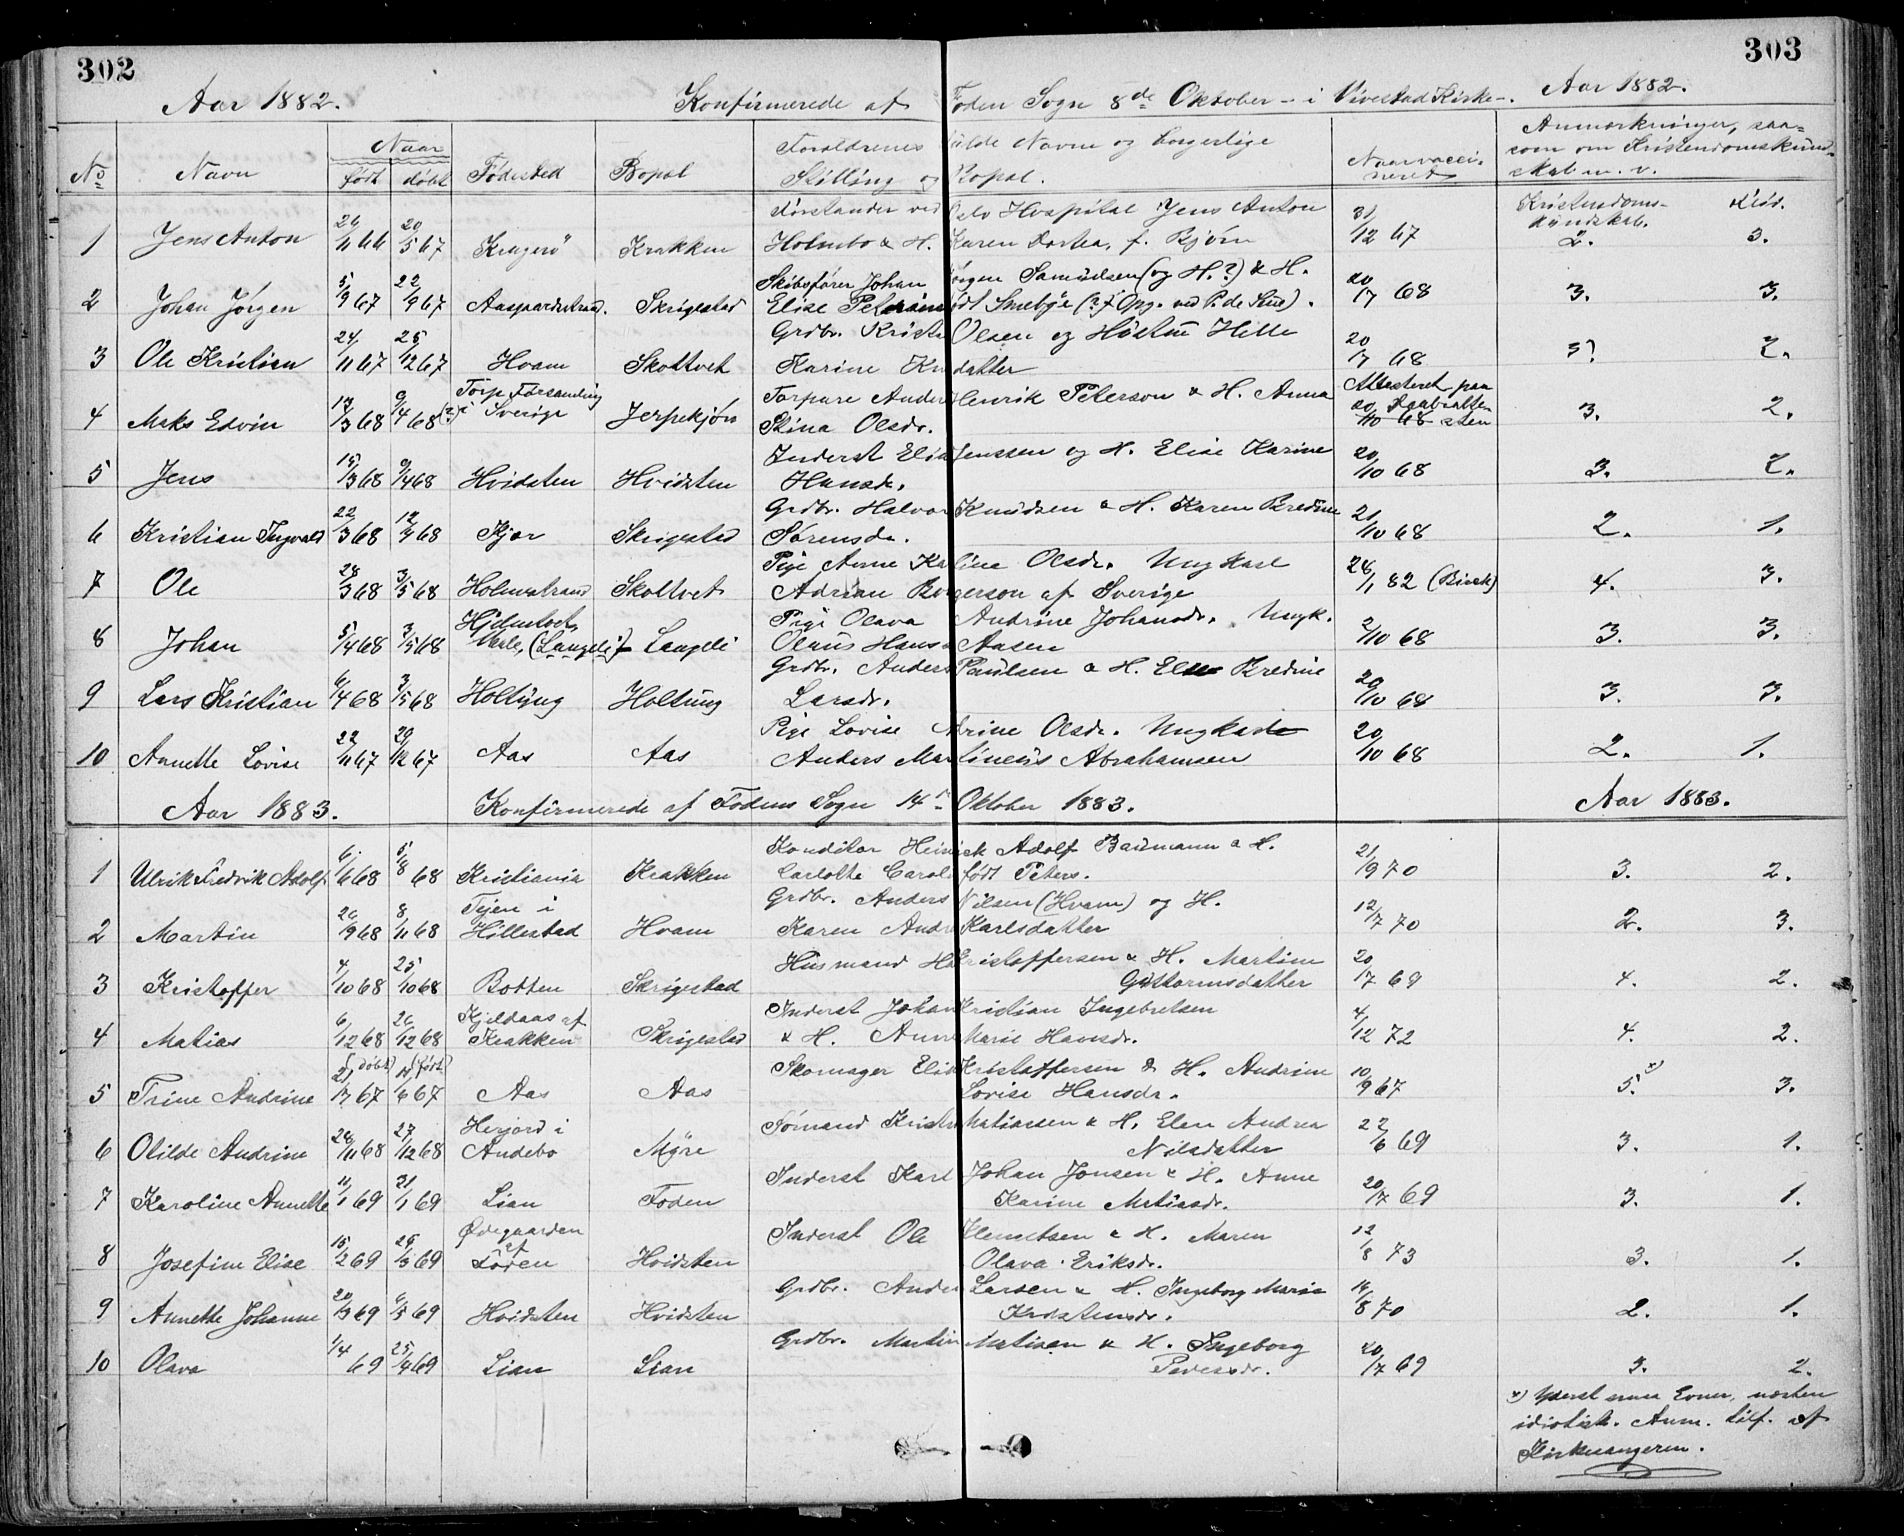 302
303
Aar 1882. Konfirmerede af Foden Sogn 8de Oktober - i Vivestad Kirke -. Aar 1882.
No Navn Naar født døbt Fødested Bopæl Forældrenes fulde Navne og borgerlige Stilling og Bopæl. Naar vaccineret Anmærkninger, saasom om Kristendomskundskab m. v.
Kristendomskundskab. Flid.
1 Jens Anton 26/11 66 20/5 67 Kragerø Krakken Forstander ved Oslo Hospital Jens Anton
Holmbo & H. Karen Dortea, f. Bjørn 31/12 67 2. 3.
2 Johan Jørgen 5/9 67 22/9 67 Aasgaardstrand Skrigestad Skibsfører Johan Jørgen Samuelsen (og H.?) & H.
Elise født Smebye (? Opg. ved P. de Seue). 20/7 68 3. 3.
3 Ole Kristian 24/11 67 25/12 67 Hvam Skottvet Grdbr. Olsen og Hustru Helle
Karine datter 20/7 68 3? 2.
4 Maks Edvin 17/3 68 9/4 68 (?) Torp Forsamling i Sverige Jerpekjøn Torpare Anders Henrik Peterson & H. Anna
Stina Olsdr. Attesteret paa 20/10 68 3. 2.
5 Jens 15/3 68 9/4 68 Hvidsten Hvidsten Inderst Elias Jenssen og H. Elise Karine
Hansdr. 20/10 68 3. 2.
6 Kristian Ingvald 22/3 68 19/7 68 Kjær Skrigestad Grdbr. Halvor Knudsen & H. Karen Bredine
Sørensdr. 21/10 68 2. 1.
7 Ole 28/3 68 3/5 68 Holmestrand Skottvet Pige Anne Karline Olsdr. Ungkarl
Adrian Borgerson af Sverige 28/1 82 (Bisek) 4. 3.
8 Johan 5/4 68 3/5 68 (Langeli) Langeli Pige Olava Andrine Johansdr. Ungk.
Olaus Hansen Aasen 2/10 68 3. 3.
9 Lars Kristian 6/4 68 3/5 68 Holtung Holtung Grdbr. Anders Paulsen & H. Elen Bredine
Larsdr. 20/10 68 3. 3.
10 Annette Lovise 22/11 67 29/12 67 Aas Aas Pige Lovise Adrine Olsdr. Ungkarl
Anders Martinius Abrahamsen 20/10 68 2. 1.
Aar 1883. Konfirmerede af Fodens Sogn 14de Oktober 1883. Aar 1883.
1 Ulrik Fredrik Adolf 6/6 68 5/8 68 Kristiania Krakken Konditor Heinrick Adolf Baumann & H.
Carlotte Caroline født Peters. 21/9 70 3. 2.
2 Martin 20/9 68 8/11 68 Tejen i Hillestad Hvam Grdbr. Anders Nilsen (Hvam) og H.
Karen Andrea Karlsdatter 12/7 70 2. 3.
3 Kristoffer 4/10 68 25/10 68 Botten Skrigestad Husmand Hans Kristoffersen & H. Martine
Guttormsdatter 20/7 69 4. 2.
4 Matias 6/12 68 26/12 68 Kjeldaas af Krakken Skrigestad Inderst Johan Kristian Ingebretsen
& H. Anne Marie Hansdr. 4/12 72 4. 2.
5 Trine Andrine 21/7 67 (døbt) 14/6 67 (født) Aas Aas Skomager Elias Kristoffersen & H. Andrine
Lovise Hansdr. 10/9 67 5. x) 3.
6 Otilde Andrine 28/11 68 27/12 68 Herjord i Andebo Myre Sømand Kristen Matiassen & H. Elen Andrea
Nilsdatter 22/6 69 3. 1.
7 Karoline Annette 11/1 69 31/1 69 Lian Foden Inderst Karl Johan Jonsen & H. Anne
Karine Matiasdr. 20/7 69 3. 1.
8 Josefine Elise 15/2 69 29/3 69 Ødegaarden af Foden Hvidsten Inderst Ole Klemetsen & H. Maren
Olava Eriksdr. 12/8 73 3. 1.
9 Annette Johanne 20/3 69 6/5 69 Hvidsten Hvidsten Grdbr. Anders Larsen & H. Ingeborg Marie
Kristensdr. 16/8 70 2. 1.
10 Olava 1/4 69 25/4 69 Lian Lian Grdbr. Martin Matisen & H. Ingeborg
20/7 69 3. 2.
x) Yderst smaa Evner, næsten
idiotisk. Anm. tilf. af
Kirkesangeren.